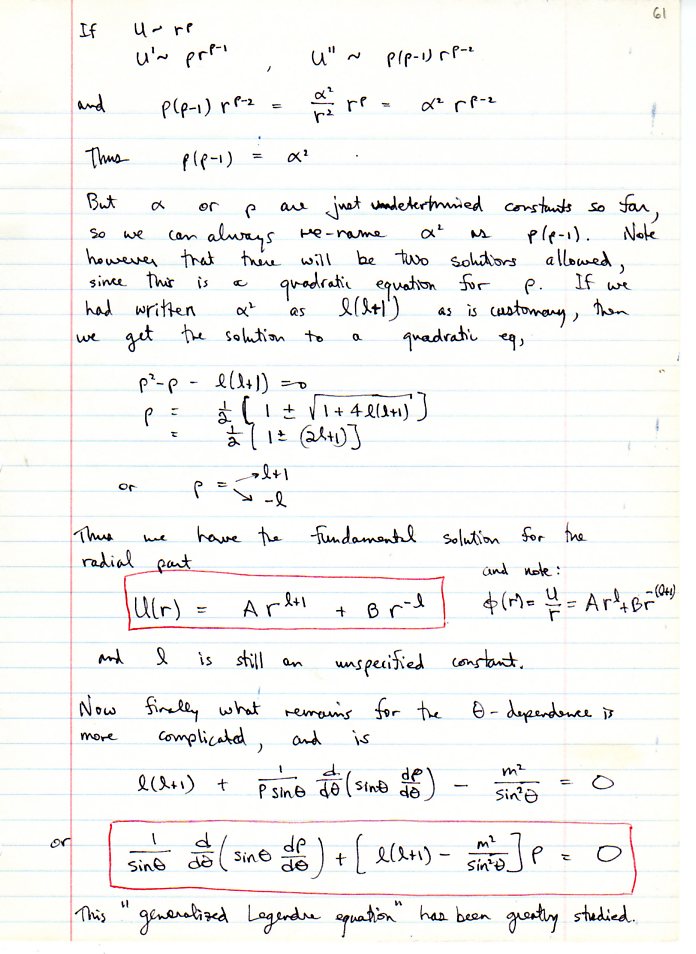 61
If U ~ r^p
U' ~ p r^{p-1} , U'' ~ p(p-1) r^{p-2}
and p(p-1) r^{p-2} = α²/r² r^p = α² r^{p-2}
Thus p(p-1) = α² .
But α or p are just undetermined constants so far,
so we can always re-name α² as p(p-1). Note
however that there will be two solutions allowed,
since this is a quadratic equation for p. If we
had written α² as l(l+1) as is customary, then
we get the solution to a quadratic eq,
p² - p - l(l+1) = 0
p = 1/2 [ 1 ± √(1 + 4l(l+1)) ]
= 1/2 [ 1 ± (2l+1) ]
or p = → l+1
↘ -l
Thus we have the fundamental solution for the
radial part
and note:
U(r) = A r^{l+1} + B r^{-l}
φ(r) = U/r = A r^l + B r^{-(l+1)}
and l is still an unspecified constant.
Now finally what remains for the θ-dependence is
more complicated, and is
l(l+1) + 1/(P sinθ) d/dθ (sinθ dP/dθ) - m²/sin²θ = 0
or 1/sinθ d/dθ (sinθ dP/dθ) + [ l(l+1) - m²/sin²θ ] P = 0
This "generalized Legendre equation" has been greatly studied.